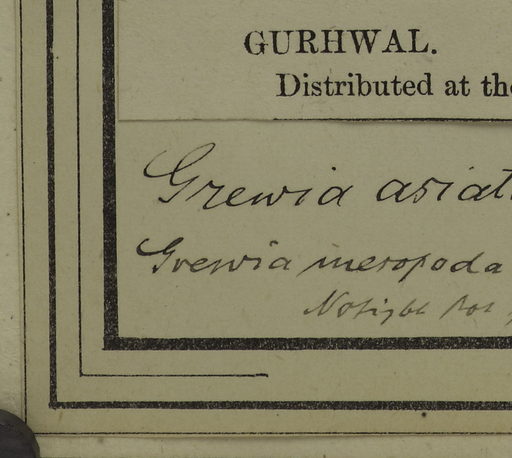 GURHWAL.
Distributed at the
Grewia asiat
Grewia mesopoda